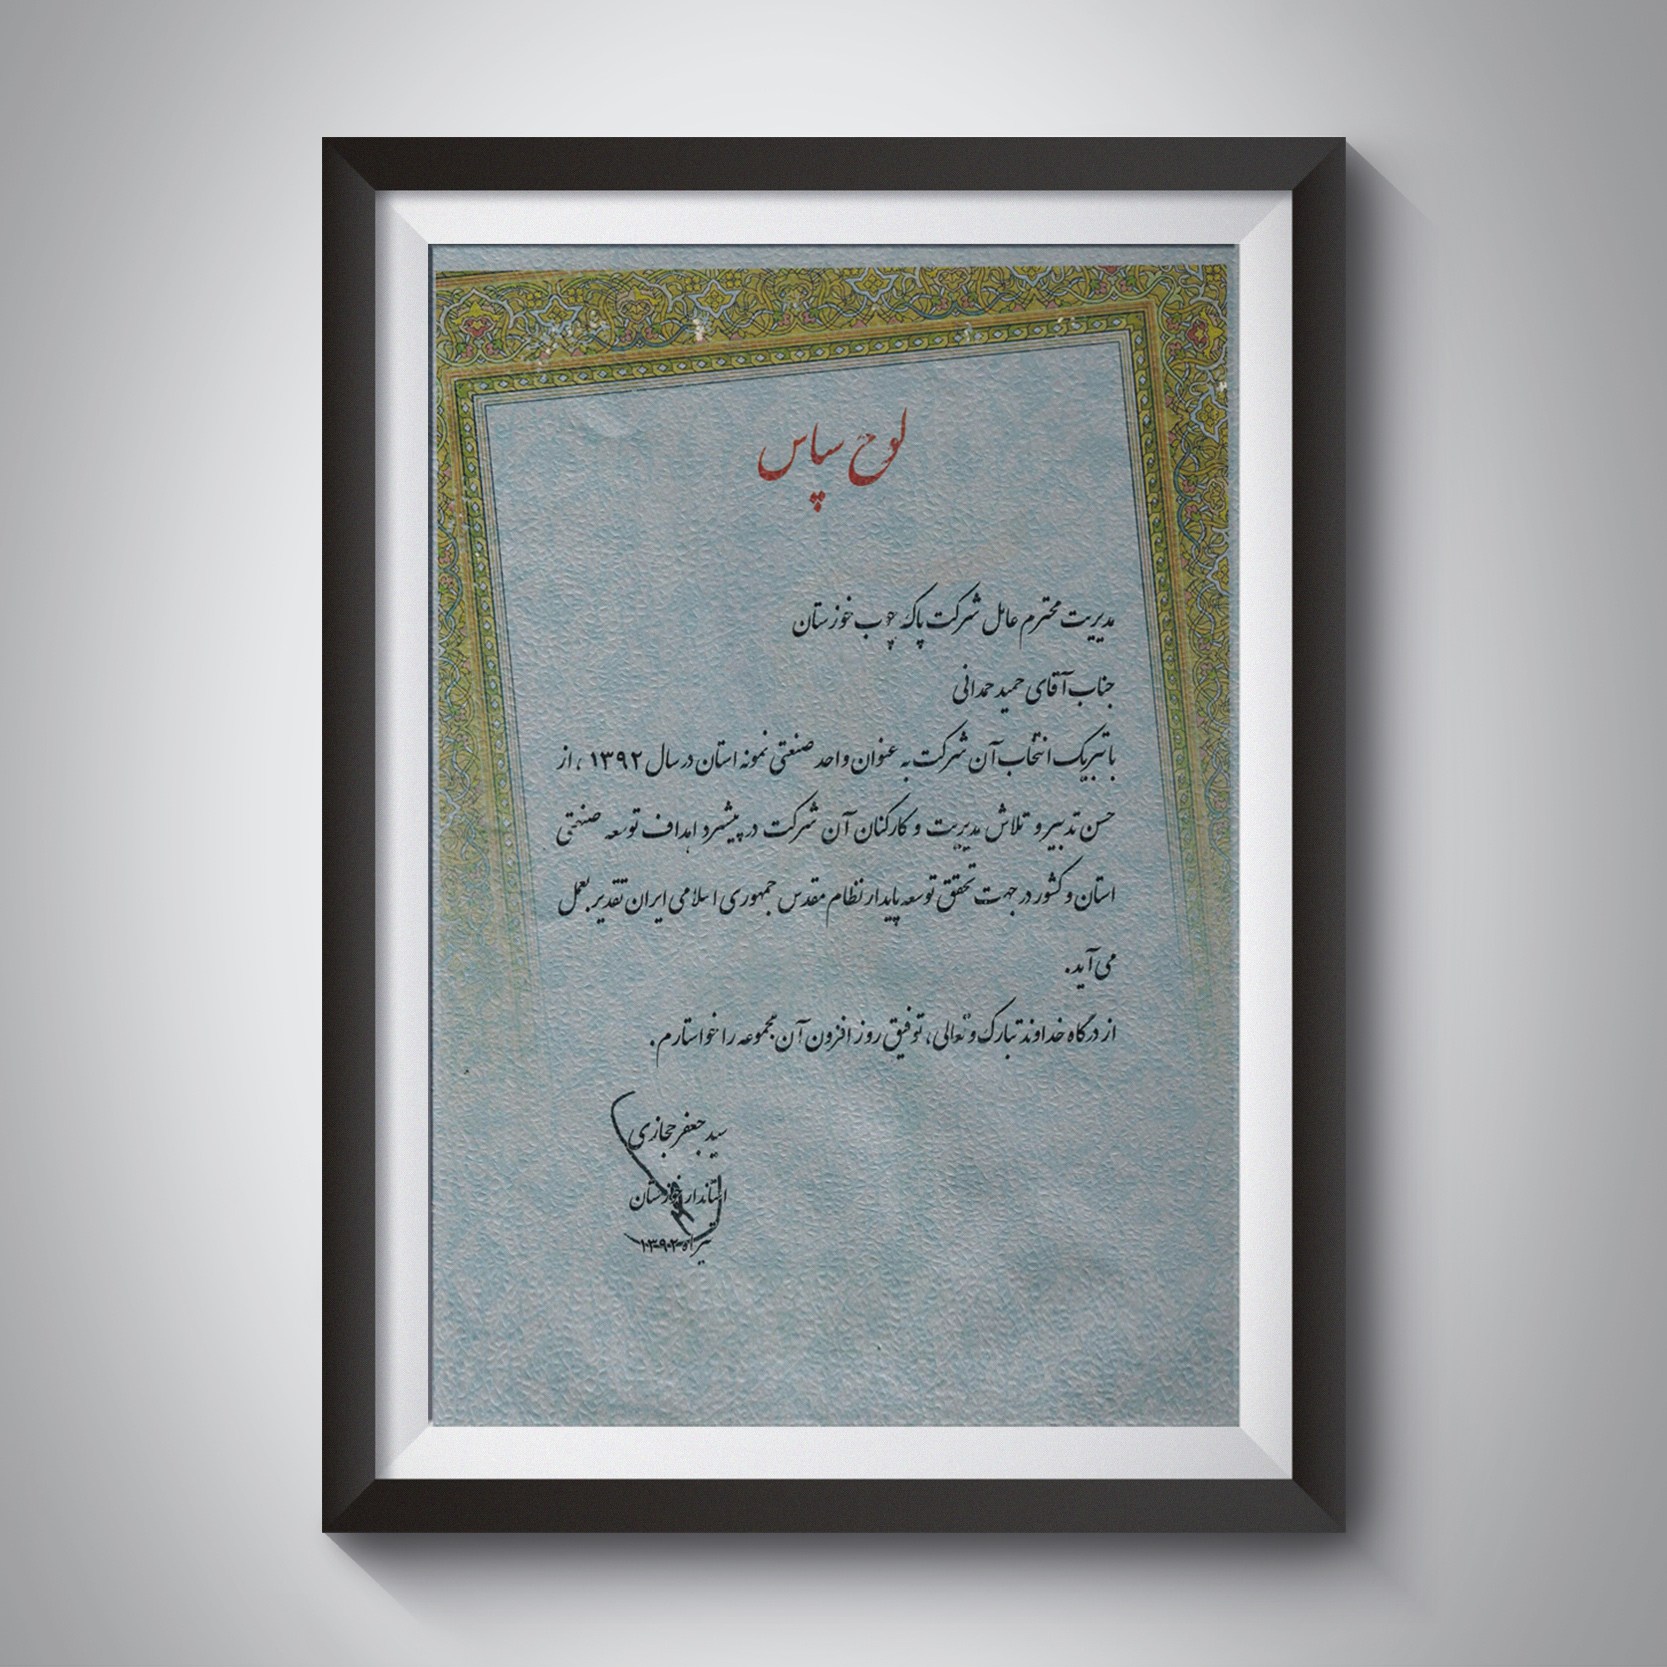 لوح سپاس
مدیریت محترم عامل شرکت پاکه چوب خوزستان
جناب آقای حمید حمدانی
با تبریک انتخاب آن شرکت به عنوان واحد صنعتی نمونه استان در سال ۱۳۹۲ ، از
حسن تدبیر و تلاش مدیریت و کارکنان آن شرکت در پیشبرد اهداف توسعه صنعتی
استان و کشور در جهت تحقق توسعه پایدار نظام مقدس جمهوری اسلامی ایران تقدیر بعمل
می آید.
از درگاه خداوند تبارک و تعالی، توفیق روز افزون آن مجموعه را خواستارم.
سید جعفر حجازی
استاندار خوزستان
تیر ماه